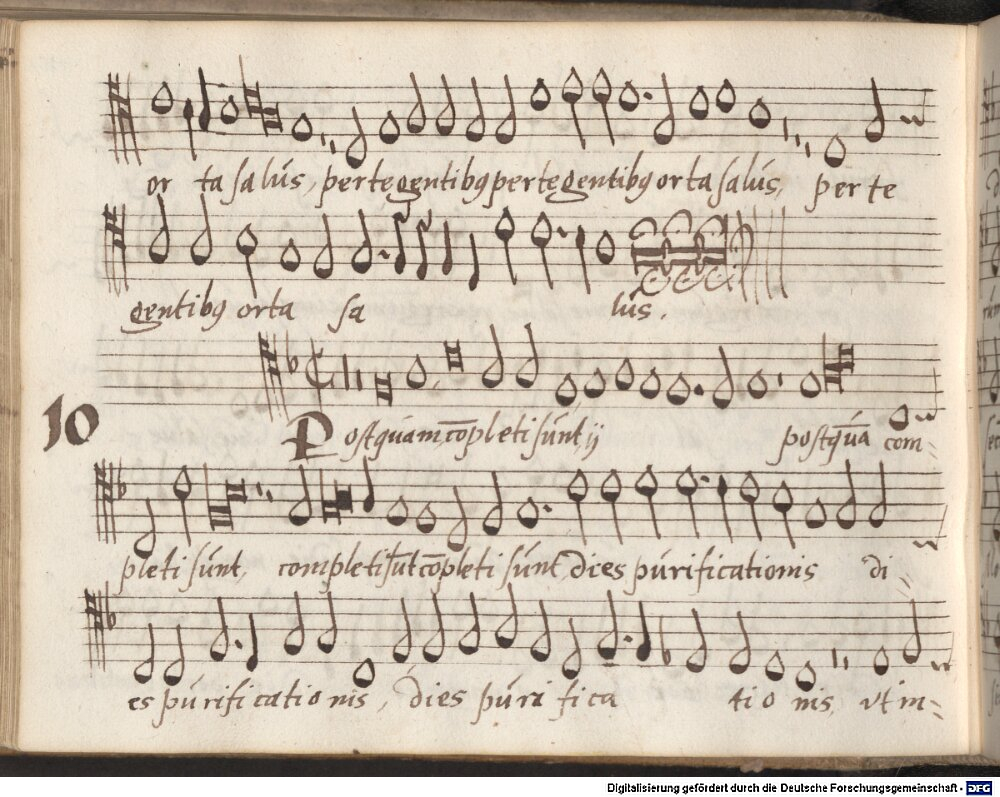 or ta salús, per te gentibꝗ per te gentibꝗ orta salús, per te
gentibꝗ orta sa lús.
10
Postquám, cōpleti súnt ij postquā com-
pleti súnt, completi sūt cōpleti súnt, dies púrificationis di-
es púrificationis, dies púrifica tionis, vt in-
Digitalisierung gefördert durch die Deutsche Forschungsgemeinschaft - DFG